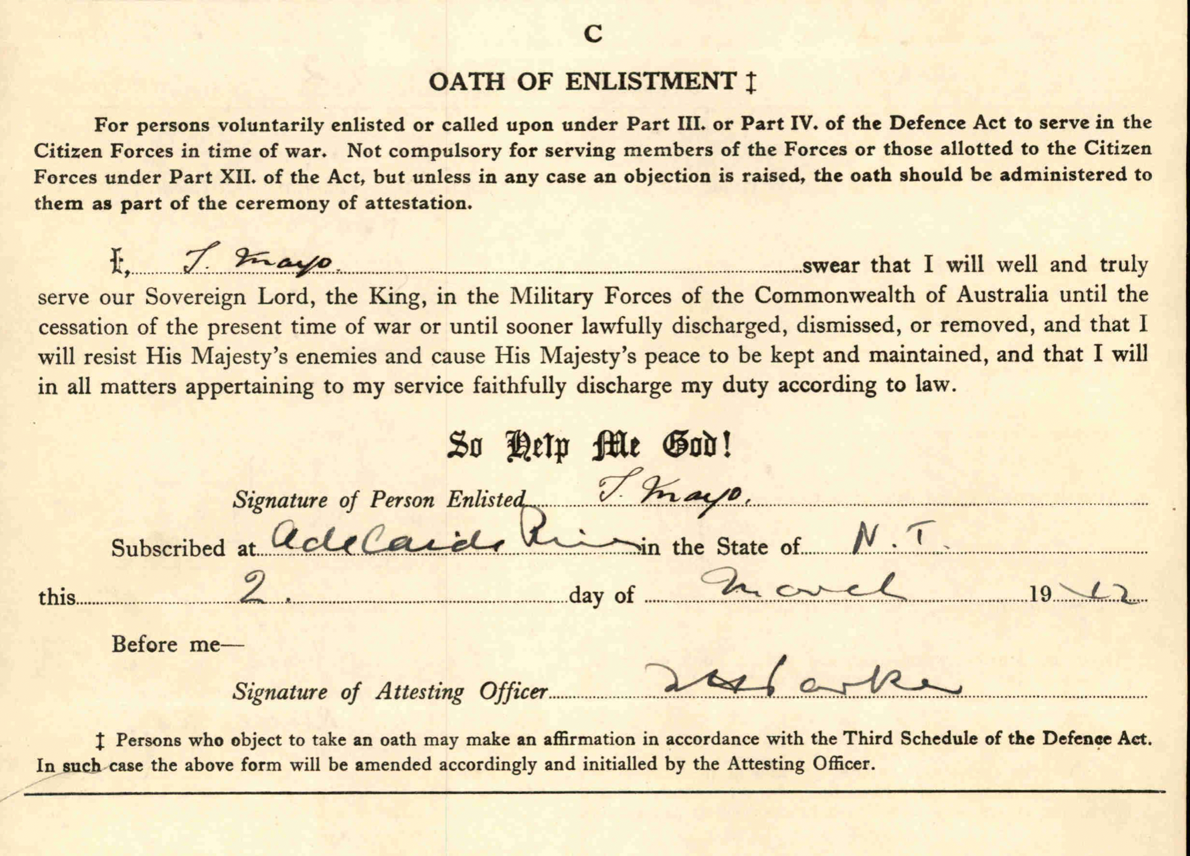 C
OATH OF ENLISTMENT ‡
For persons voluntarily enlisted or called upon under Part III. or Part IV. of the Defence Act to serve in the
Citizen Forces in time of war. Not compulsory for serving members of the Forces or those allotted to the Citizen
Forces under Part XII. of the Act, but unless in any case an objection is raised, the oath should be administered to
them as part of the ceremony of attestation.
I, T. Mayo. swear that I will well and truly
serve our Sovereign Lord, the King, in the Military Forces of the Commonwealth of Australia until the
cessation of the present time of war or until sooner lawfully discharged, dismissed, or removed, and that I
will resist His Majesty's enemies and cause His Majesty's peace to be kept and maintained, and that I will
in all matters appertaining to my service faithfully discharge my duty according to law.
So Help Me God!
Signature of Person Enlisted T. Mayo.
Subscribed at Adelaide River in the State of N.T.
this 2. day of March 1942
Before me—
Signature of Attesting Officer Parker
‡ Persons who object to take an oath may make an affirmation in accordance with the Third Schedule of the Defence Act.
In such case the above form will be amended accordingly and initialled by the Attesting Officer.